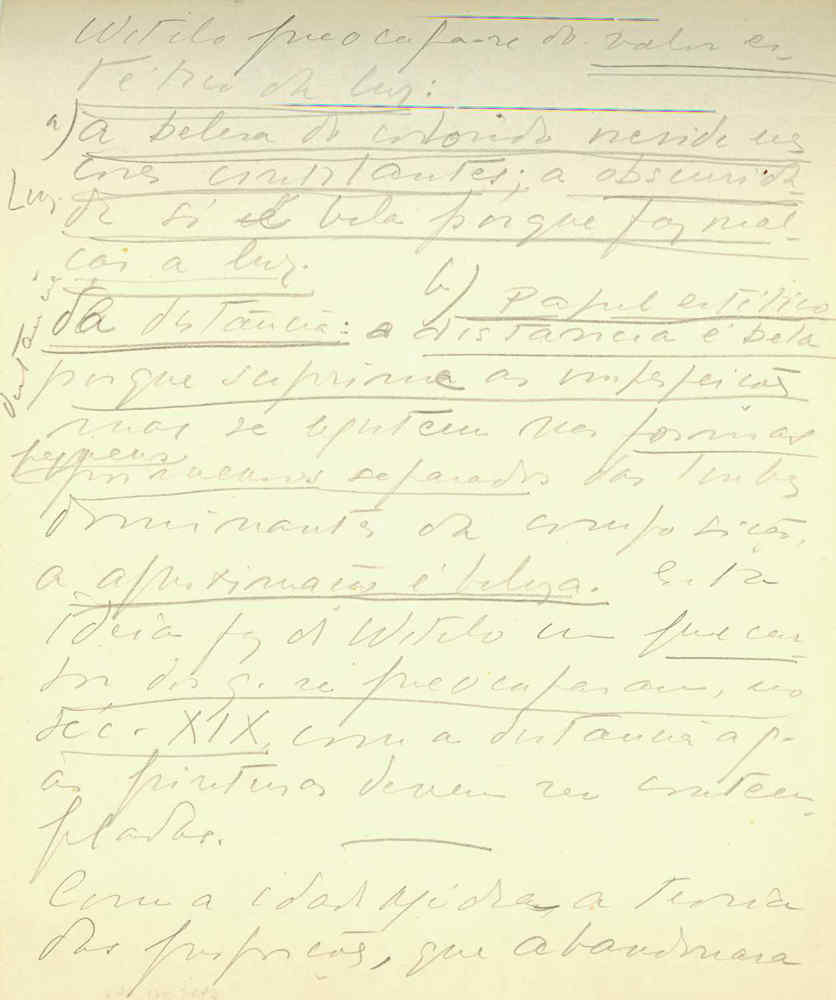 Witelo preocupa-se do valor es-
tético da luz:
a) a beleza do colorido reside nas
cores constantes; a obscurida
Luz
de si é bela porque faz real-
çar a luz.
b) Papel estético
da distância: a distância é bela
distância
porque suprime as imperfeições
mas se existem nas formas
pequenas
separados das linhas
dominantes da composição,
a aproximação é beleza. Esta
idéia faz de Witelo um precur-
sor dos q. se preocuparam, no
séc. XIX, com a distância a q.
as pinturas devem ser contem-
pladas.
Com a idade Média, a teoria
das proporções, que abandonara